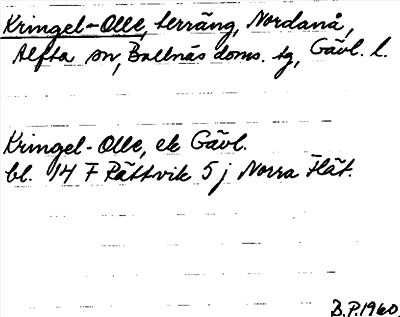 Kringel-Olle, terräng, Nordanå,
Alfta sn, Bollnäs doms. tg, Gävl. l.
Kringel-Olle, ek Gävl.
bl. 14 F Rättvik 5 j Norra Flät.
B.P. 1960.